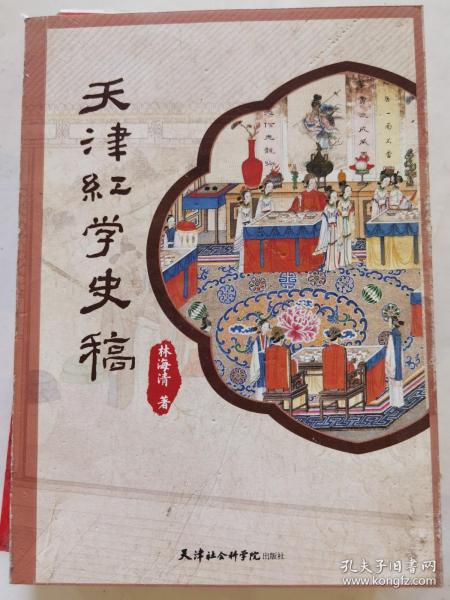 天津红学史稿
林海清 著
天津社会科学院出版社
孔夫子旧书网
www.kongfz.com